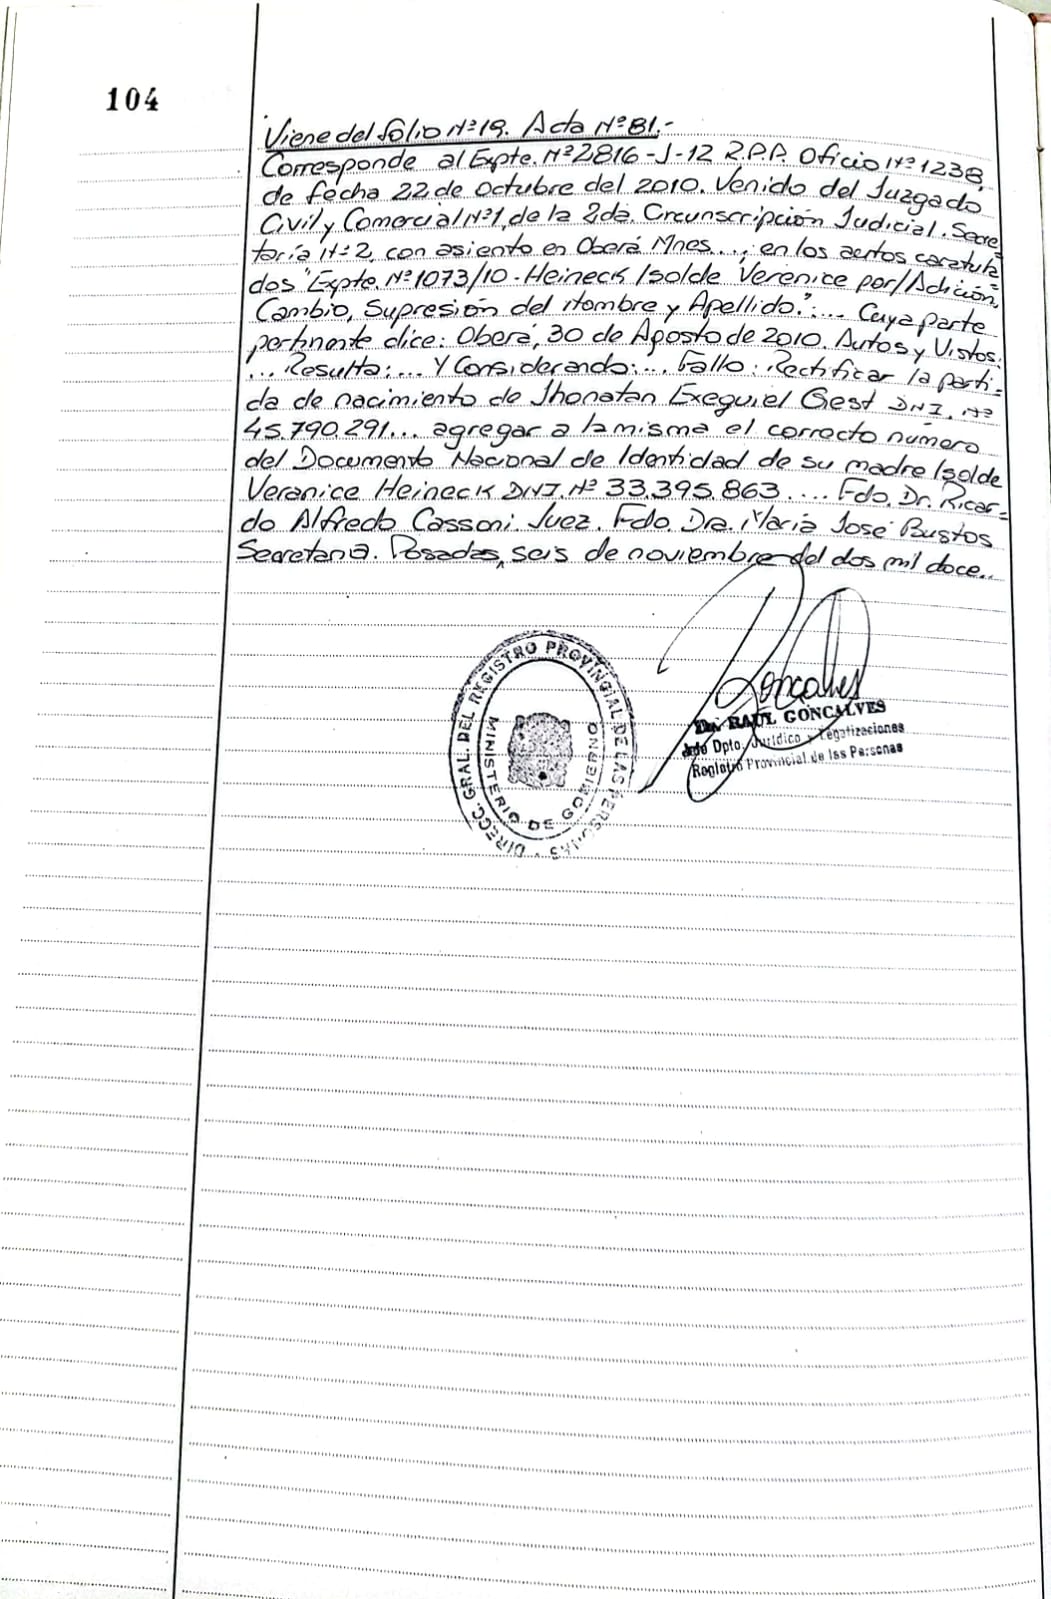 104
Viene del folio Nº 19. Acta Nº 81.-
Corresponde al Expte. Nº 2816-J-12 R.P.P. Oficio Nº 1238,
de fecha 22 de Octubre del 2010. Venido del Juzgado
Civil y Comercial Nº 1, de la 2da. Circunscripción Judicial. Secre=
taría Nº 2, con asiento en Oberá Mnes...; en los autos caratula=
dos "Expte. Nº 1073/10 - Heineck Isolde Verenice por/Adición,
Cambio, Supresión del Nombre y Apellido.":... Cuya parte
pertinente dice: Oberá, 30 de Agosto de 2010. Autos y Vistos:
... Resulta:... Y Considerando:... Fallo: Rectificar la parti=
da de nacimiento de Jhonatan Exequiel Gest DNI. Nº
45.790.291... agregar a la misma el correcto número
del Documento Nacional de Identidad de su madre Isolde
Veranice Heineck DNI. Nº 33.395.863.... Fdo. Dr. Ricar=
do Alfredo Cassoni. Juez. Fdo. Dra. María José Bustos
Secretaria. Posadas, seis de noviembre del dos mil doce..
DIRECC. GRAL. DEL REGISTRO PROVINCIAL DE LAS PERSONAS
MINISTERIO DE GOBIERNO
Goncalves
Dr. RAUL GONCALVES
Jefe Dpto. Jurídico y Legalizaciones
Registro Provincial de las Personas